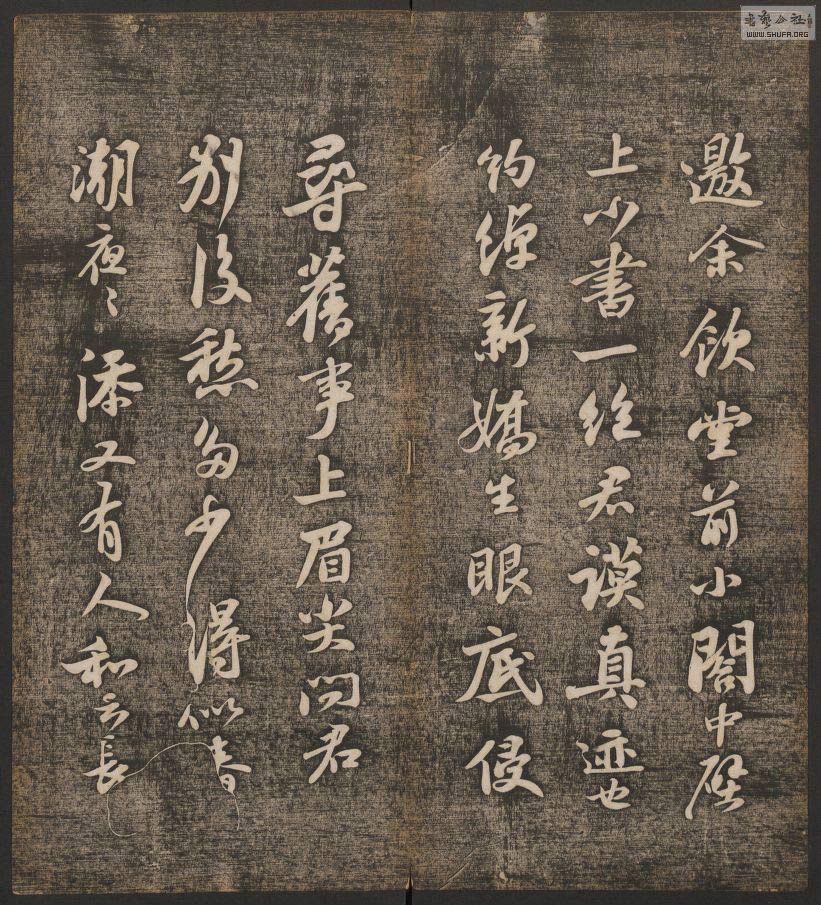 邀余飲堂前小閣中壁
上小書一絶君謨真迹也
約綽新嬌生眼底侵
尋舊事上眉尖問君
别後愁多少得似春
潮夜〻添又有人和云長
書藝公社
WWW.SHUFA.ORG